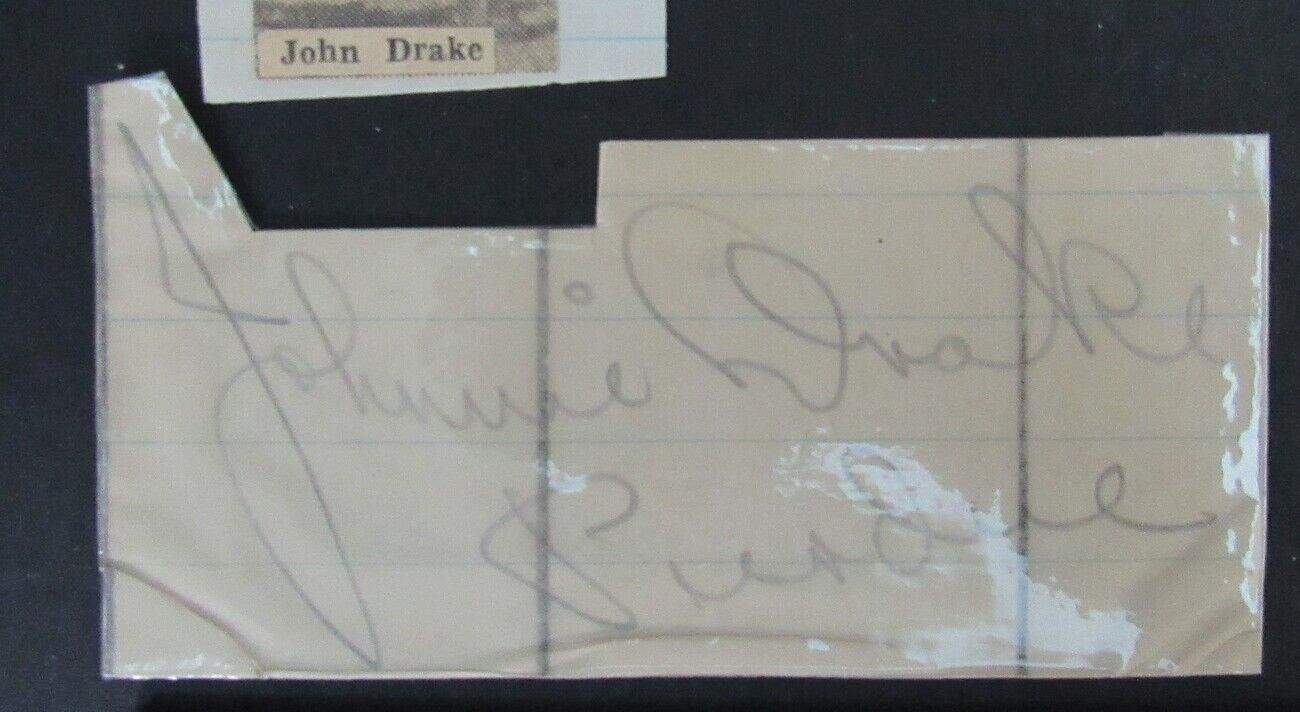 John Drake
Johnnie Drake
Purdue